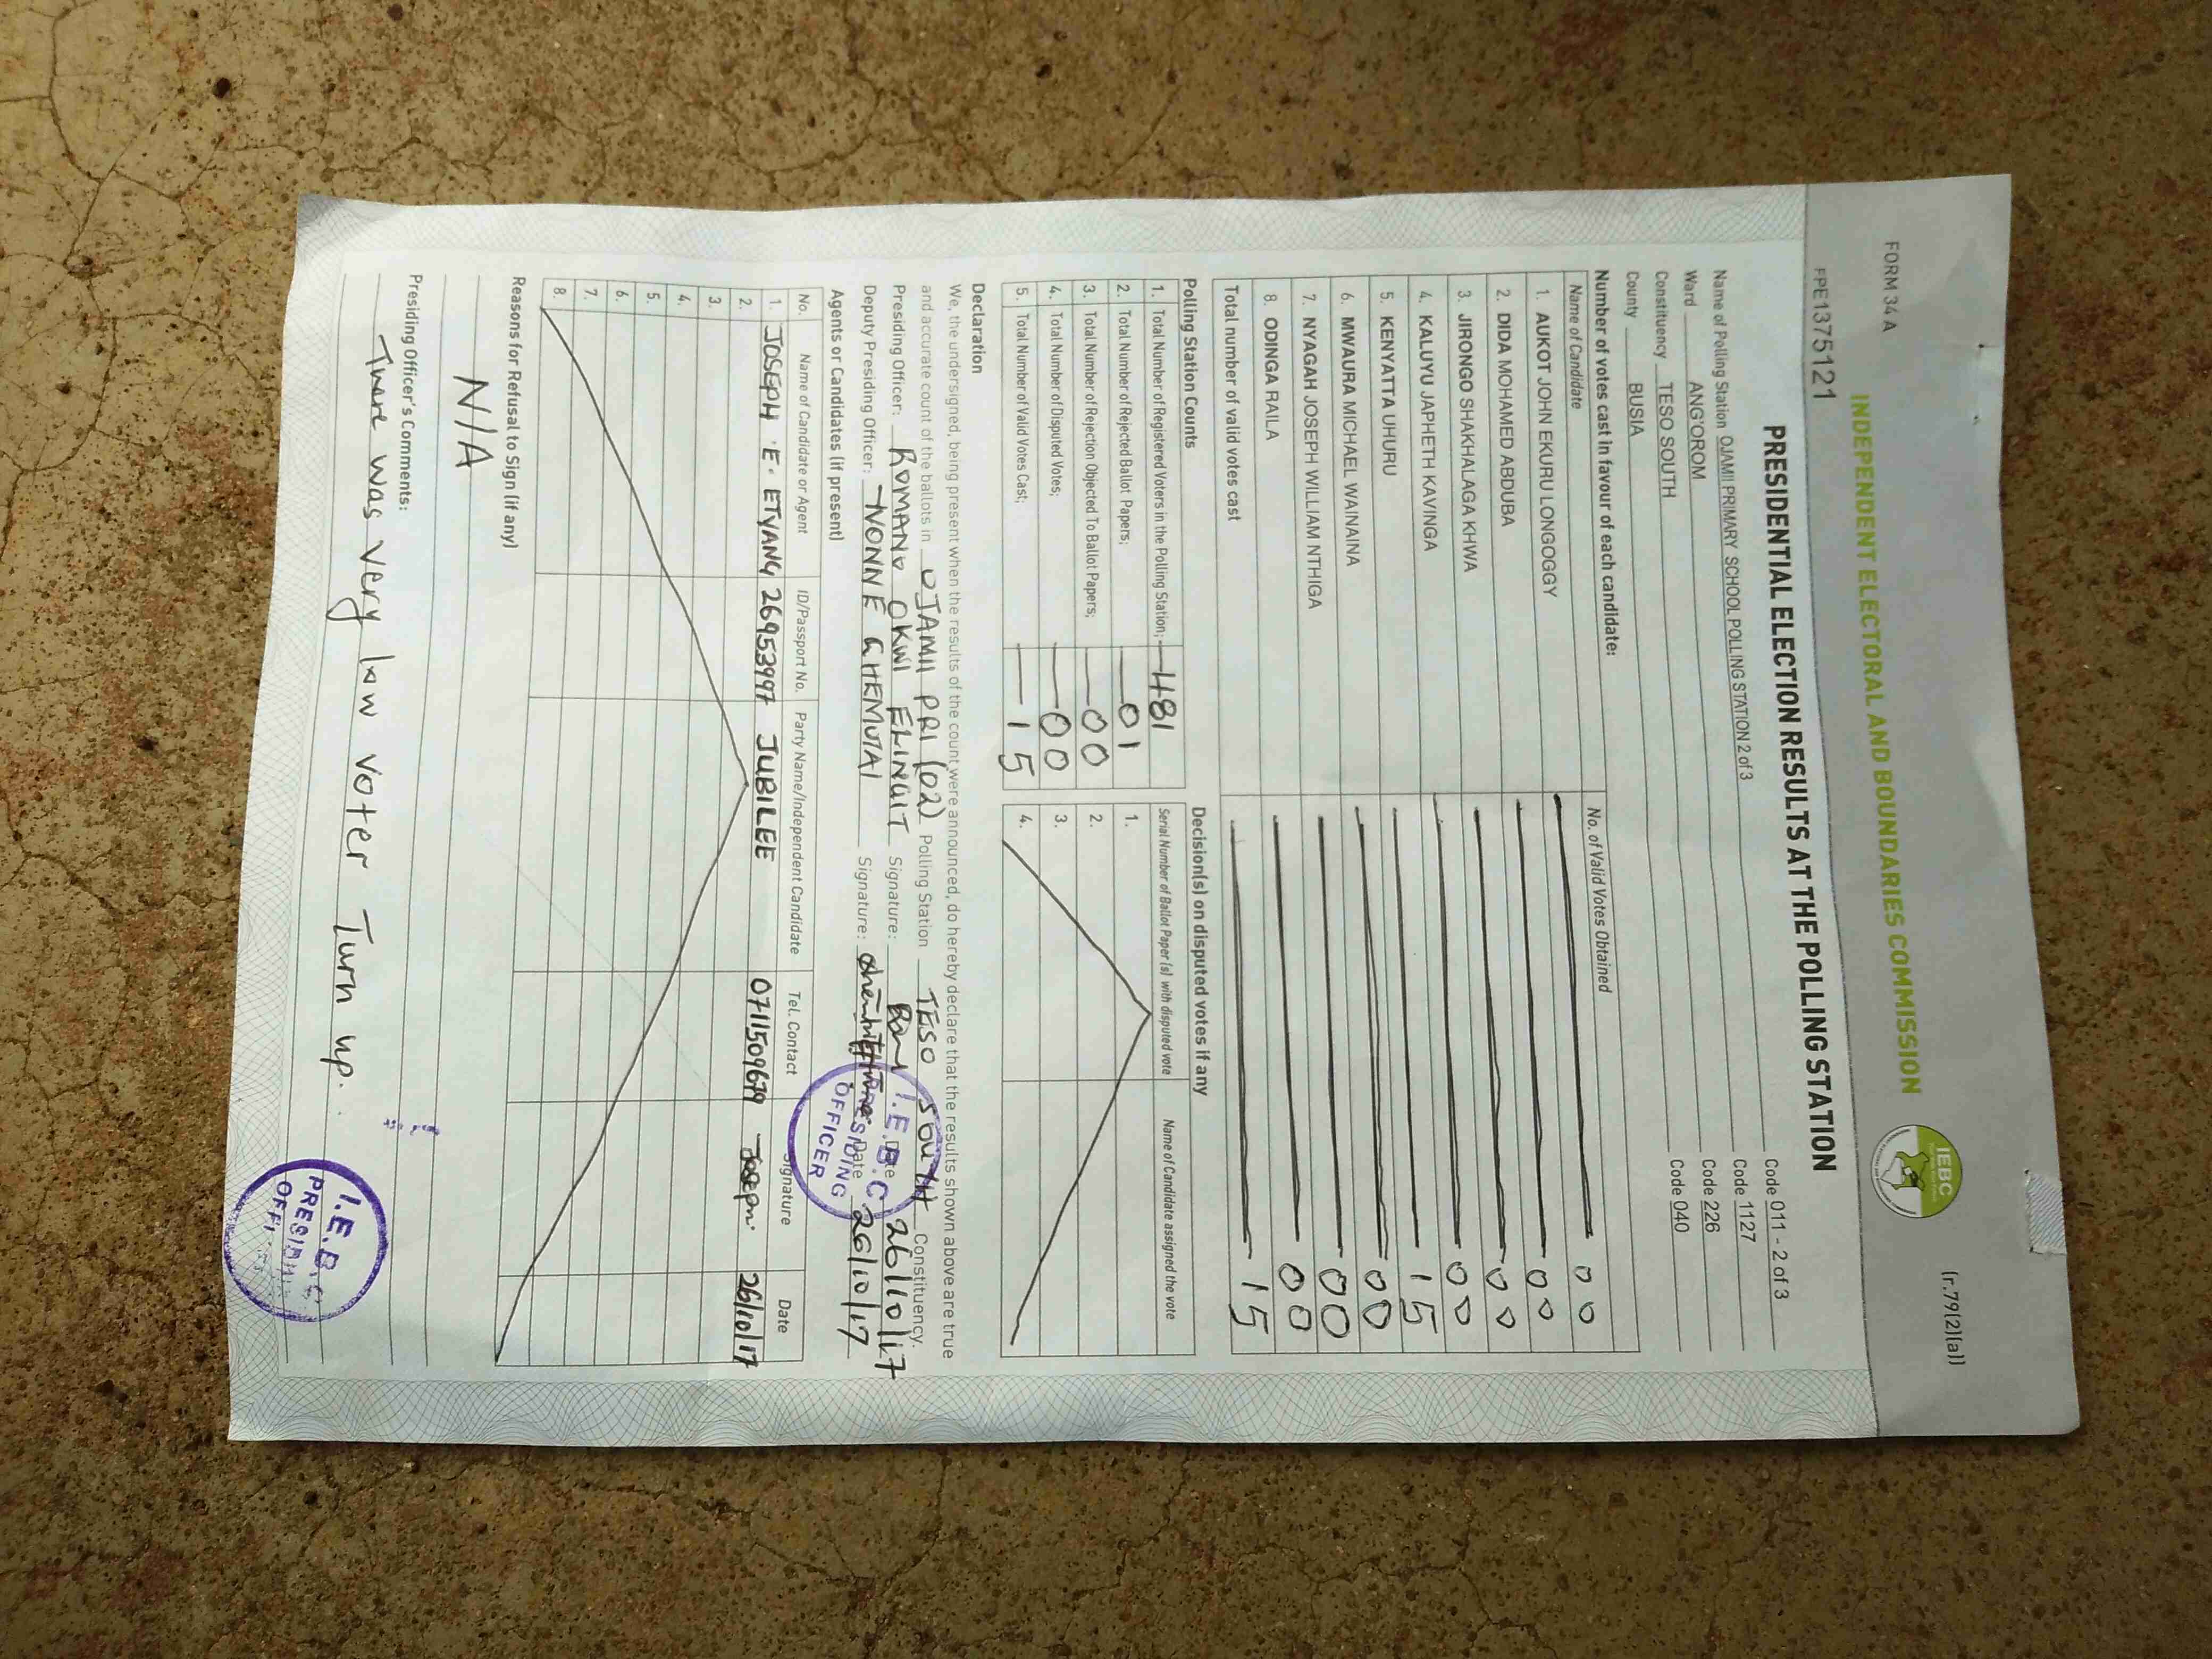 FORM 34 A
(r.79(2)(a))
INDEPENDENT ELECTORAL AND BOUNDARIES COMMISSION
IEBC
FPE1375121
PRESIDENTIAL ELECTION RESULTS AT THE POLLING STATION
Name of Polling Station OJAMII PRIMARY SCHOOL POLLING STATION 2 of 3 Code 011 - 2 of 3
Ward ANG'OROM Code 1127
Constituency TESO SOUTH Code 226
County BUSIA Code 040
Number of votes cast in favour of each candidate:
Name of Candidate No. of Valid Votes Obtained
1. AUKOT JOHN EKURU LONGOGGY 00
2. DIDA MOHAMED ABDUBA 00
3. JIRONGO SHAKHALAGA KHWA 00
4. KALUYU JAPHETH KAVINGA 00
5. KENYATTA UHURU 15
6. MWAURA MICHAEL WAINAINA 00
7. NYAGAH JOSEPH WILLIAM NTHIGA 00
8. ODINGA RAILA 00
Total number of valid votes cast 15
Polling Station Counts
1. Total Number of Registered Voters in the Polling Station; 481
2. Total Number of Rejected Ballot Papers; 01
3. Total Number of Rejection Objected To Ballot Papers; 00
4. Total Number of Disputed Votes; 00
5. Total Number of Valid Votes Cast; 15
Decision(s) on disputed votes if any
Serial Number of Ballot Paper (s) with disputed vote Name of Candidate assigned the vote
1.
2.
3.
4.
Declaration
We, the undersigned, being present when the results of the count were announced, do hereby declare that the results shown above are true
and accurate count of the ballots in OJAMII PRI (02) Polling Station TESO SOUTH Constituency.
Presiding Officer: ROMANO OKWI ELINGIT Signature: Date 26/10/17
Deputy Presiding Officer: IVONNE CHEMUTAI Signature: Date 26/10/17
I.E.B.C
PRESIDING
OFFICER
Agents or Candidates (if present)
No. Name of Candidate or Agent ID/Passport No. Party Name/Independent Candidate Tel. Contact Signature Date
1. JOSEPH E. ETYANG 26953997 JUBILEE 0711509679 Joseph. 26/10/17
2.
3.
4.
5.
6.
7.
8.
Reasons for Refusal to Sign (if any)
N/A
Presiding Officer's Comments:
There was very low voter Turn up.
I.E.B.C
PRESIDING
OFFI